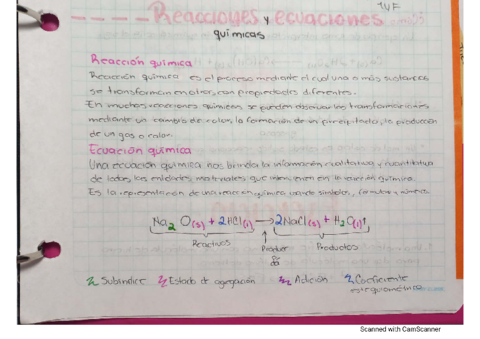 Reacciones y ecuaciones
químicas
Reacción química
Reacción química es el proceso mediante el cual una o más sustancias
se transforman en otras con propiedades diferentes.
En muchas reacciones químicas, se pueden observar las transformaciones
mediante un cambio de color, la formación de un precipitado, la producción
de un gas o calor.
Ecuación química
Una ecuación química nos brinda la información cualitativa y cuantitativa
de todas las entidades materiales que intervienen en la reacción química.
Es la representación de una reacción química usando símbolos, fórmulas y números.
Na2 O(s) + 2HCl(l) → 2NaCl(s) + H2O(l)↑
Reactivos Produc Productos
Subíndice Estado de agregación Adición Coeficiente
estequiométrico
Scanned with CamScanner